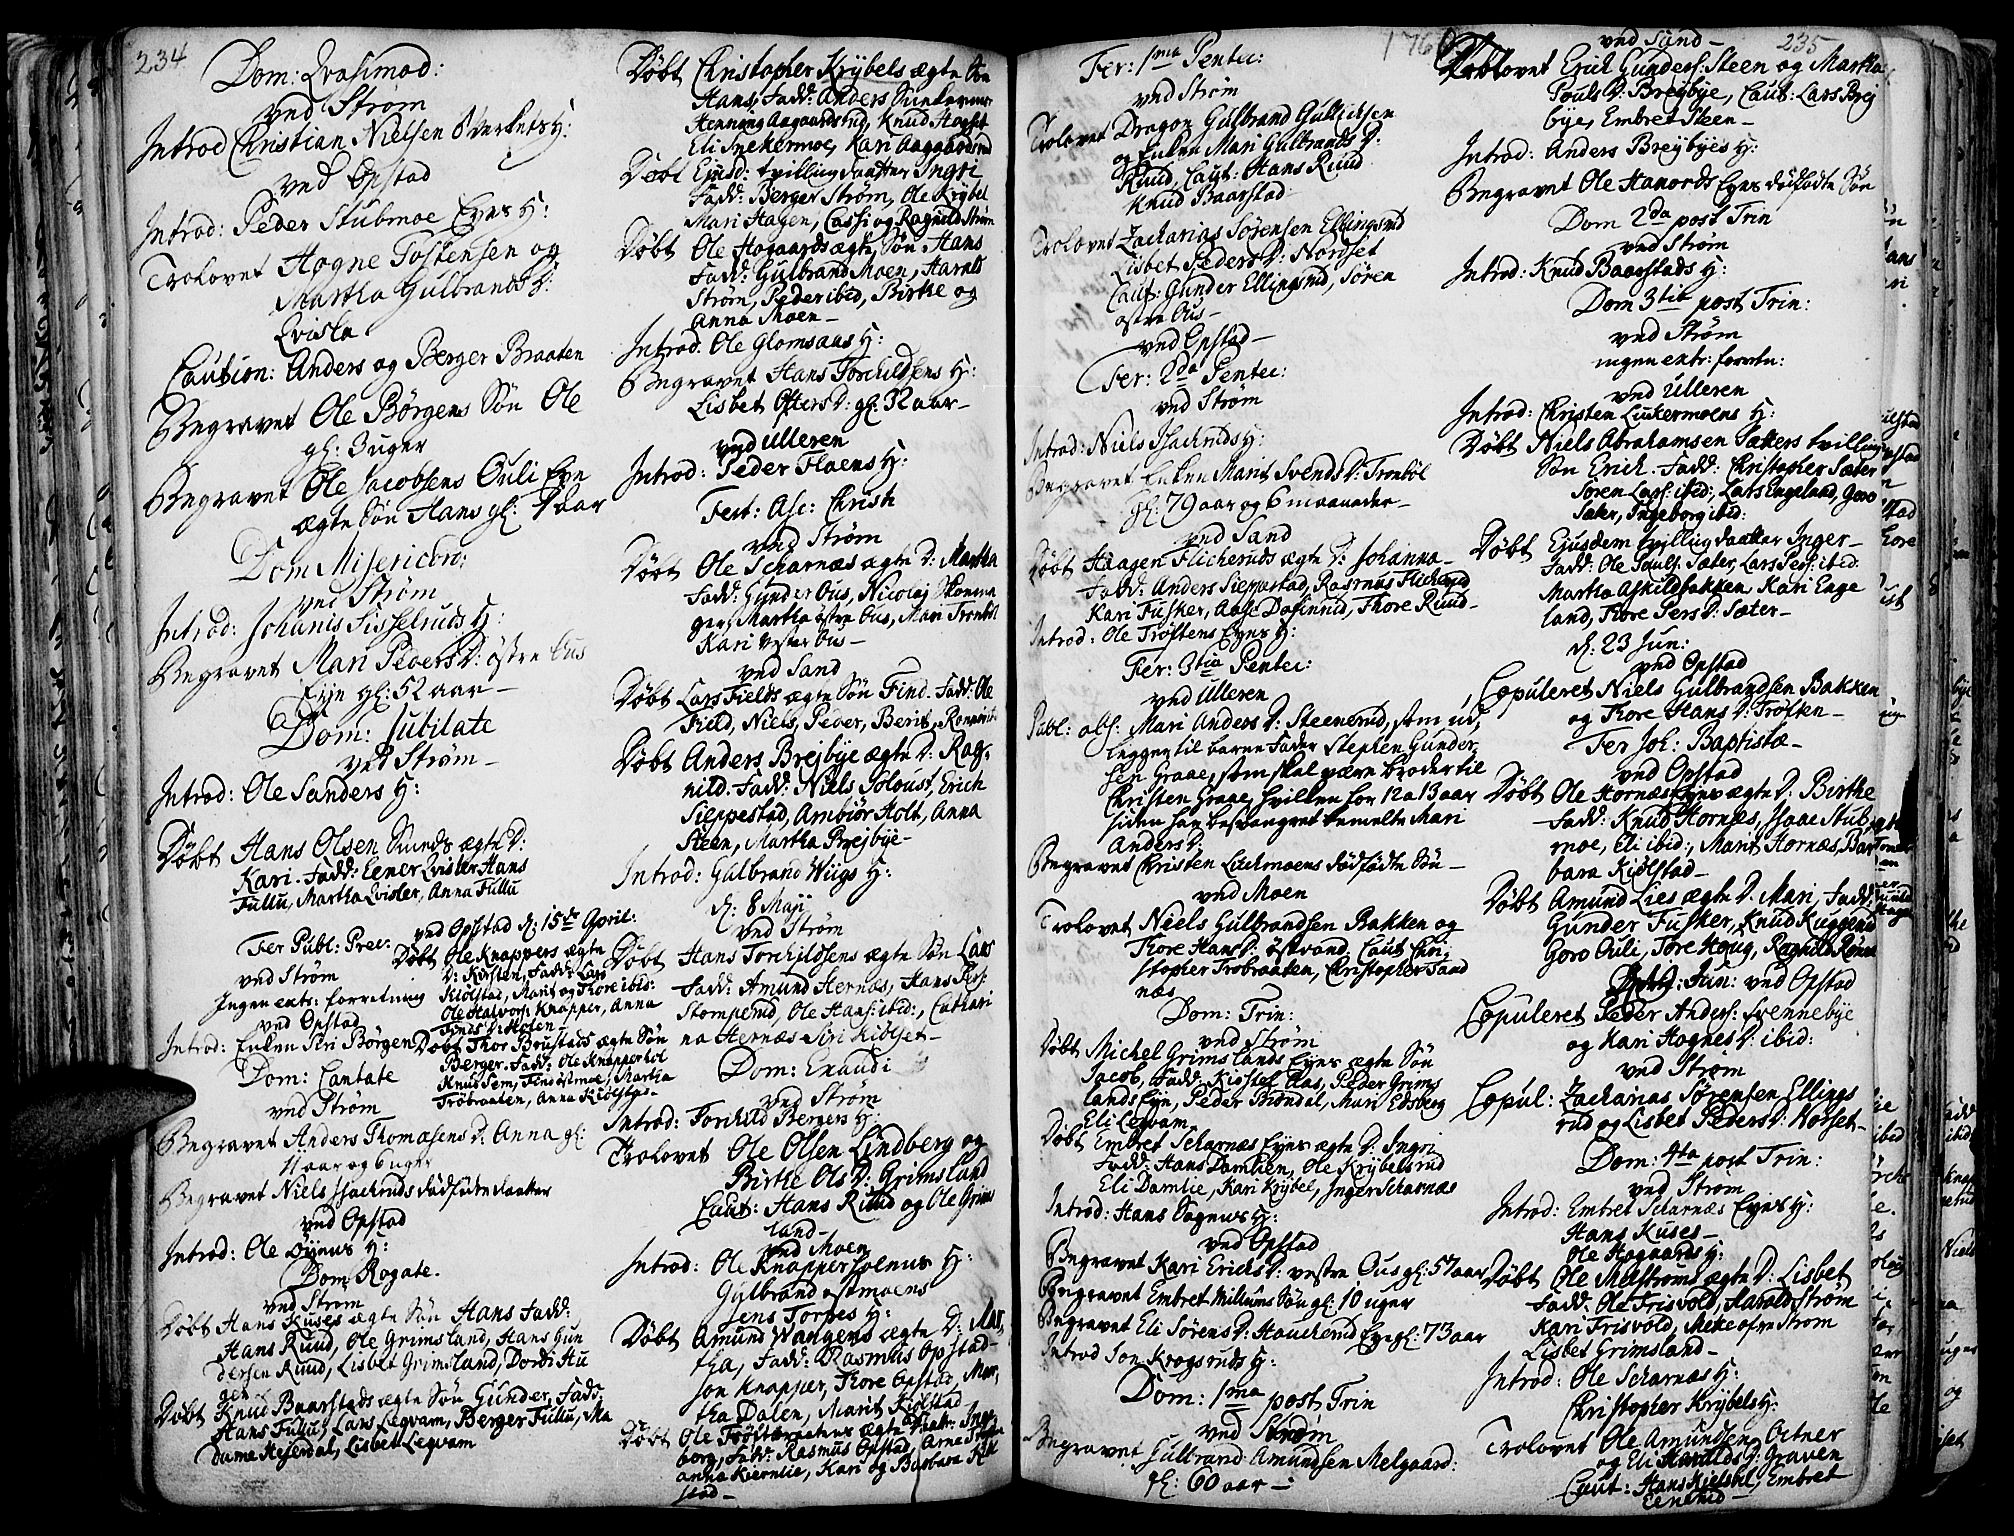 234
Dom: Qvasimod:
ved Strøm
Introd Christian Nielsen Overkets H:
ved Opstad
Introd: Peder Stubmoe Eyes H:
Trolovet Hogne Tostensen og
Martha Gulbrands D:
Qvisla
Caution: Anders og Berger Braaten
Begravet Ole Børgens Søn Ole
gl: 3 uger
Begravet Ole Jacobsens Ouli Eye
ægte Søn Hans gl: aar
Dom Misericord:
ved Strøm
Introd: Johanis Sisselruds H:
Begravet Mari Peders D: østre Ous
Eye gl: 52 aar
Dom: Jubilate
ved Strøm
Introd: Ole Sanders H:
Døbt Hans Olsen Sunds ægte D:
Kari. Fadd: Eener Qvisler Hans
Fullu, Martha Qvisler, Anna Fullu
Fer Publ: Prec:
ved Strøm
Ingen extr: forretning
ved Opstad
Introd: Enken Siri Børgen
Dom: Cantate
ved Strøm
Begravet Anders Thomæsens D: Anna gl:
11 aar og 6 uger
Begravet Niels Isachruds dødfødte daatter
ved Opstad
Introd: Ole Øiens H:
Dom: Rogate.
ved Strøm
Døbt Hans Kuses ægte Søn Hans Fadd:
Hans Ruud, Ole Grimsland, Hans Gun
dersen Ruud, Lisbet Grimsland, Dordi Hu
gen
Døbt Knud Baarstads ægte Søn Gunder, Fadd:
Hans Fullu, Lars Legvam, Berger Fullu, Ma
Lisbet Legvam
ved Opstad d: 15de April:
Døbt Ole Knappers ægte
D: Kirsten, Fadd: Lars
Kiølstad, Marit og Thore ibid:
Ole Halvors: Knapper, Anna
Finds D: Holen
Døbt Thor Brustads ægte Søn
Berger. Fadd: Ole Knapperhol
Knud Sem, Find østmoe, Martha
Trøbraaten, Anna Kiølstad
Døbt Christopher Krybels ægte Søn
Hans, Fadd: Anders Snekermoe
Henning Aagaardsrud, Knud Hogset
Eli Snekermoe, Kari Aagaardsrud
Døbt Ejusd: tvilling daatter Ingri
Fadd: Berger Strøm, Ole Krybel
Mari Hagen, Cassi og Ragnild Strøm
Døbt Ole Hogaards ægte Søn Hans
Fadd: Gulbrand Moen, Harald
Strøm, Peder ibid, Birthe og
Anna Moen
Introd: Ole Glomsaas H:
Begravet Hans Torchildsens H:
Lisbet Ofters D: gl: 32 aar
ved Ulleren
Introd: Peder Floens H:
Fest: Asc: Christi
ved Strøm
Døbt Ole Scharnæs ægte D: Martha
Fadd: Gunder Ous, Nicolaj Skomma
ger, Martha østre Ous, Mari Trønbøl
Kari vestre Ous
ved Sand
Døbt Lars Fields ægte Søn Find. Fadd: Ole
Field, Niels, Peder, Berit,
Døbt Anders Brejbye ægte D: Rag,
nild. Fadd: Niels Soloust, Erich
Sieppestad, Ambiør Holt, Anna
Steen, Martha Brejbye
Introd: Gulbrand Wiigs H:
d: 8 Maji
ved Strøm
Døbt Hans Torchildsens ægte Søn Lars
Fadd: Amund Hernæs, Hans Pes:
Stomperud, Ole Hans: ibid:, Cathari
na Hernæs, Siri Kiølset
Dom: Exaudi
ved Strøm
Introd: Torchild Bergers H:
Trolovet Ole Olsen Lindberg og
Birthe Ols D: Grimsland
Caut: Hans Ruud og Ole Grims
land
ved Moen
Introd: Ole Knapperholens H:
Gylbrand østmoens
Jens Torpes H:
Døbt Amund Wangens ægte D: Mar,
tha, Fadd: Rasmus Opstad
Jon Knapper, Thore Opstad, Mar,
tha Dalen, Marit Kiølstad
Døbt Ole Trøstbraatens ægte Daatr: Inge
borg, Fadd: Rasmus Opstad, Arne
Anna Kiernlie, Kari og Barbara Kiøl
stad
176
235
Fer: 1ma Pentec:
ved Strøm
Trolovet Dragon Gulbrand Gulbrandsen
og Enken Mari Gulbrands D:
Ruud, Caut: Hans Ruud
Knud Baarstad
Trolovet Zacharias Sørensen Ellingsrud
Lisbet Peders D: Norset
Caut: Gunder Ellingsrud, Søren
østre Ous
ved Opstad
Fer: 2da Pentec:
ved Strøm
Introd: Niels Isachruds H:
Begravet Enken Marit Svends D: Trønbøl
gl: 79 aar og 6 maaneder
ved Sand
Døbt Haagen Flicheruds ægte D: Johanna
Fadd: Anders Sieppestad, Rasmus Flicherud
Kari Fusker, Aase Dofinrud, Thore Ruud
Introd: Ole Trøftens Eyes H:
Fer: 3tia Pentec:
ved Ulleren
Publ: abs: Mari Anders D: Steenerud, som ud,
legger til barne Fader Stephen Gunder
sen Graae, som skal være broder til
Christen Graae, hvilken for 12 a 13 aar
siden har besvangret bemelte Mari
Anders D:
Begravet Christen Lukmoens dødfødte Søn
ved Moen
Trolovet Niels Gulbrandsen Bakken og
Thore Hans D: østvand, Caut: Chri,
stopher Trøbraaten, Christopher Sand
næs
Dom: Trin:
ved Strøm
Døbt Michel Grimslands Eyes ægte Søn
Jacob, Fadd: Kiøstel Aas, Peder Grims
lands Eye, Peder Brøndal, Mari Edsberg
Eli Legvam
Døbt Embret Scharnæs Eyes ægte D: Ingri
Fadd: Hans Damlien, Ole Krybelsrud
Eli Damlie, Kari Krybel, Inger Scharnæs
Introd: Hans Sagens H:
ved Opstad
Begravet Kari Erichs D: vestre Ous gl: 57 aar
Begravet Embret Millums Søn gl: 10 uger
Begravet Eli Sørens D: Hauchrud Eye gl: 73 aar
Introd Jon Krogsruds H:
Dom: 1ma post Trin
ved Strøm
Begravet Gulbrand Amundsen Melgaard:
gl: 60 aar
ved Sand
Trolovet Erich Gunders: Steen og Martha
Pouls D: Brejbye, Caut: Lars Brej
bye, Embret Steen
Introd: Anders Brejbyes H:
Begravet Ole Hanords Eyes dødfødte Søn
Dom 2da post Trin
ved Strøm
Introd: Knud Baarstads H:
Dom 3tia post Trin:
ved Strøm
ingen extr: forretn:
ved Ulleren
Introd: Christen Lukermoens H:
Døbt Niels Abrahamsen Sætters tvilling
Søn Erich. Fadd: Christopher Sæter
Søren Lars: ibid:, Lars Engeland, Goro
Sæter, Ingeborg ibid:
Døbt Ejusdem tvilling daatter Inger
Fadd: Ole Pouls: Sæter, Lars Peds: ibid:
Martha Askildsbakken, Kari Enge
land, Thore Pers D: Sæter
d: 23 Jun:
ved Opstad
Copuleret Niels Gulbrandsen Bakken
og Thore Hans D: Trøften
Fer Joh: Baptistæ
ved Opstad
Døbt Ole Hornæs Eyes ægte D: Birthe
Fadd: Knud Hornæs, Isaac Stub,
moe, Eli ibid:, Marit Hornæs, Bar
bara Kiølstad
Døbt Amund Lies ægte D: Mari, Fadd:
Gunder Fusker, Knud Kuggerud
Goro Ouli, Tore Houg, Ragnild Rønæs
Jun: ved Opstad
Copuleret Peder Anders: Svennebye
og Kari Hognes D: ibid:
ved Strøm
Copul: Zacharias Sørensen Ellings
rud og Lisbet Peders D: Norset
Dom: 4ta post Trin:
ved Strøm
Introd: Embret Scharnæs Eyes H:
Hans Kuses
Ole Hogaards H:
Døbt Ole Melstrøms ægte D: Lisbet
Fadd: Ole Frisvold, Harald Strøm
Kari Frisvold, Strøm
Lisbet Grimsland
Introd: Ole Scharnæs H:
Christopher Krybels H:
Trolovet Ole Amundsen Octner
og Eli Haralds D: Graven
Caut: Hans Kielsbøl, Embret
Eenerud